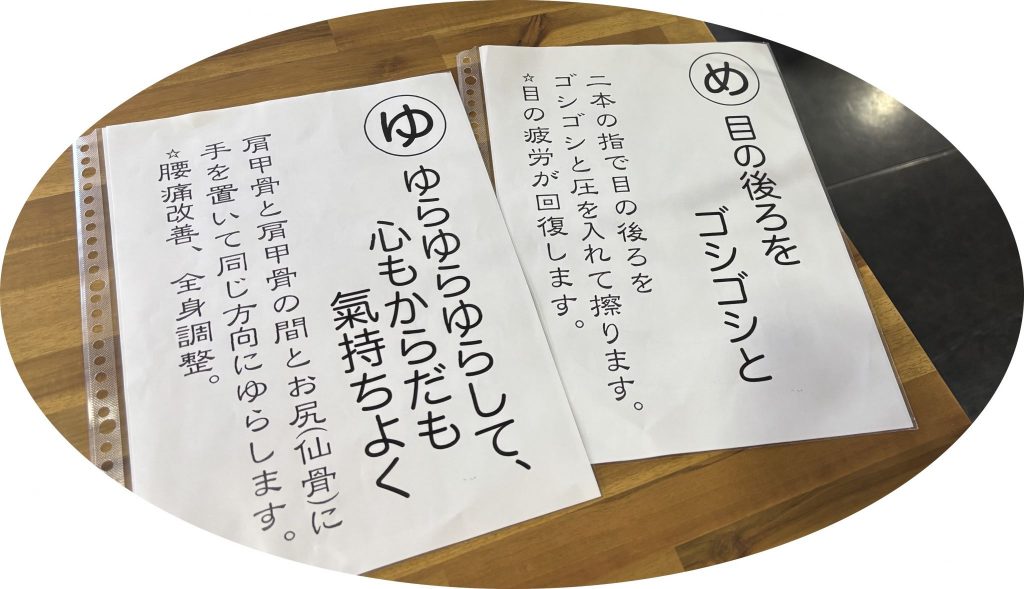 め
目の後ろを
ゴシゴシと
二本の指で目の後ろを
ゴシゴシと圧を入れて擦ります。
☆目の疲労が回復します。
ゆ
ゆらゆらゆらして、
心もからだも
氣持ちよく
肩甲骨と肩甲骨の間とお尻(仙骨)に
手を置いて同じ方向にゆらします。
☆腰痛改善、全身調整。